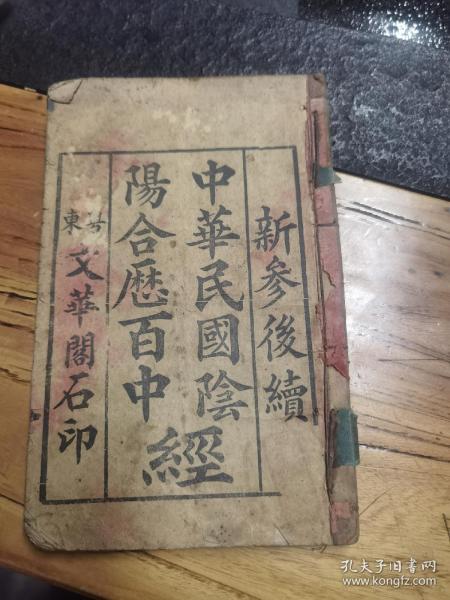 新參後續
中華民國陰
陽合歷百中
經
東
文華閣石印
孔夫子旧书网
www.kongfz.com